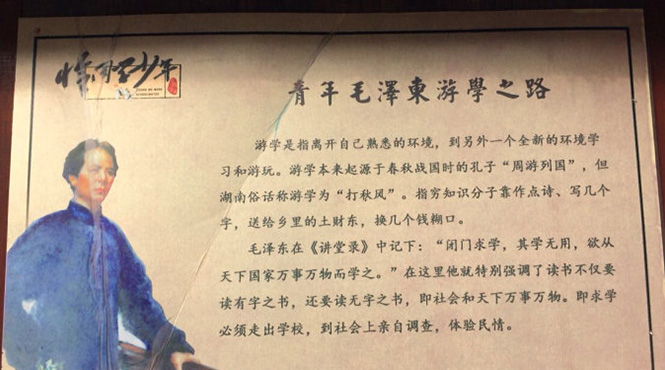 恰同学少年
青年毛澤東游學之路
游学是指离开自己熟悉的环境，到另外一个全新的环境学
习和游玩。游学本来起源于春秋战国时的孔子“周游列国”，但
湖南俗话称游学为“打秋风”。指穷知识分子靠作点诗、写几个
字，送给乡里的土财东，换几个钱糊口。
毛泽东在《讲堂录》中记下：“闭门求学，其学无用，欲从
天下国家万事万物而学之。”在这里他就特别强调了读书不仅要
读有字之书，还要读无字之书，即社会和天下万事万物。即求学
必须走出学校，到社会上亲自调查，体验民情。